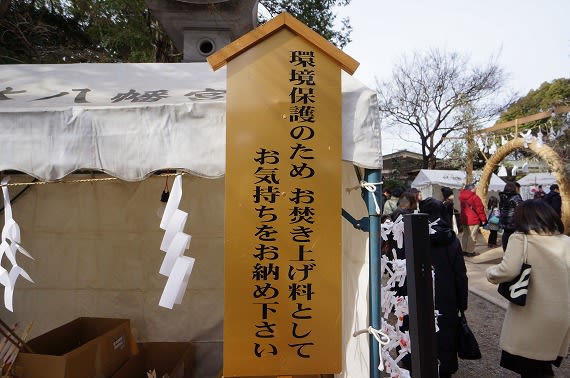 八幡宮
環境保護のため お焚き上げ料として
お気持ちをお納め下さい